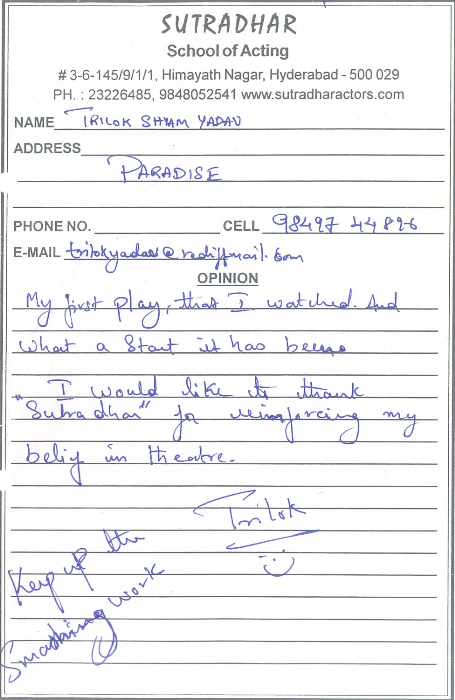 SUTRADHAR
School of Acting
# 3-6-145/9/1/1, Himayath Nagar, Hyderabad - 500 029
PH. : 23226485, 9848052541 www.sutradharactors.com
NAME TRILOK SHYAM YADAV
ADDRESS
PARADISE
PHONE NO. CELL 98497 44896
E-MAIL trilokyadav@rediffmail.com
OPINION
My first play, that I watched. And
what a Start it has been.
I would like to thank
"Sutradhar" for reinforcing my
belief in theatre.
Trilok
Keep up the
Smashing work